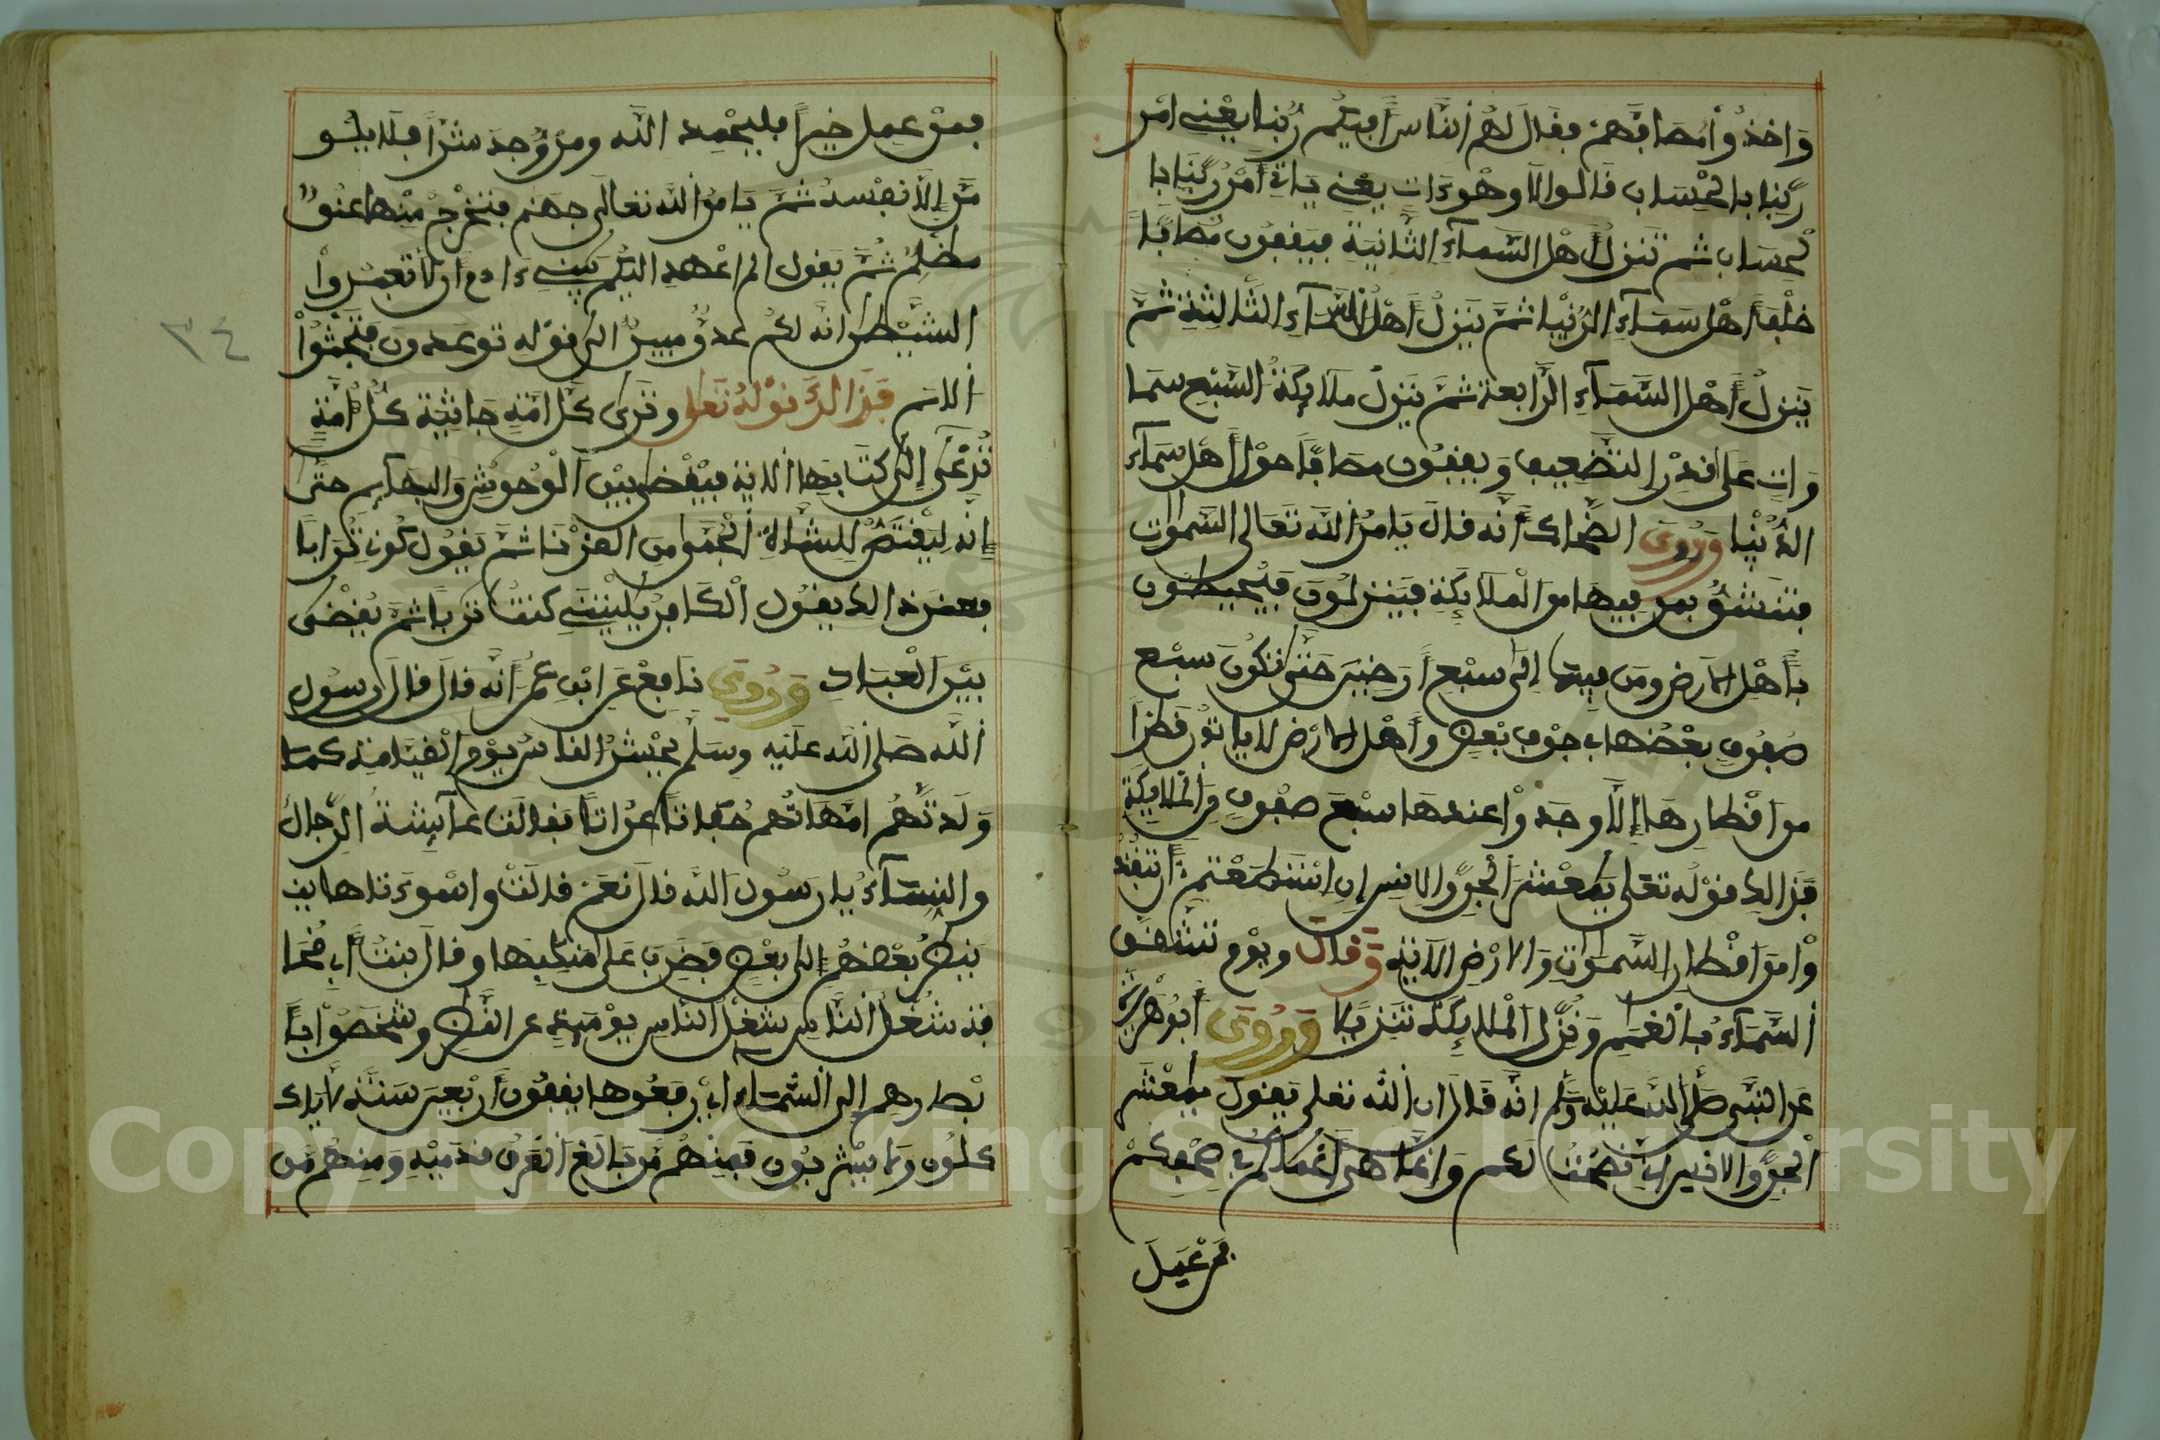 وَاخذُواْ مُصَابَّهم فِقَالَ لهُم النَّاسُ أَفِيكُم رَبُّنَا يعْنِي امْر
رَبِّنا بالحِسَاب قَالوا لَا وهْوءَاتٍ يعْنِي يَاتِي أَمْرُ رَبِّنَا بِا
لْحِسَاب ثم تَنزلُ أَهْل السَّمَآءِ الثَّانيَة فيَقفُون مُصَابًّا
خلْفَ أهْل سَمَآءِ الدُّنْيا ثمَّ يَنزلُ أَهْلُ السَّمَآءِ الثَّالِثَة ثمَّ
يَنزلُ أَهْل السَّمَآءِ الرَّابعة ثمَّ تنزل ملَايِكَةُ السَّبْع سمَا
وَاتٍ عَلى قدْرِ التَّضْعِيفِ وَيقفُون مصَابًّا حوْلَ أَهْل سَمَآءِ
الدُّنْيا وَرُوِيَ الضَّحَّاك أنَّه قالَ يَامُرُ اللَّه تَعَالى السَّمَواتِ
فتَنشَقُّ بمن فِيهَا من الْمَلَايِكَة فيَنزلُونَ فَيُحيطُون
بأَهْل الارضِ ومَن فِيهَا إلى سبْعِ أَرَضِينَ حَتَّى تكُونَ سبْع
صُفُوفٍ بعْضُها في جوْفِ بعْضٍ وأَهْل الارْضِ لا ياتُو قَطْرًا
من اقْطارِهَا إلَّا وجَدُواْ عندهَا سبْعَ صفُوفٍ مِّنَ الْمَلَايِكَةِ
فَذَالِكَ قوْلُه تعَلى يَمَعْشَرَ الْجِنِّ وَالِانسِ إِنِ اسْتَطَعْتمُ أَن تَنفُذُ
واْ مِنَ اقْطارِ السَّمَوَاتِ وَالارْضِ الآيَة وَقَالَ ويوْم تشَّقَّق
السَّمَآءُ بالْغَمَمِ وَنُزِّلَ الْمَلَايِكَةُ تَنزِيلًا وَرُوِيَ أَبُو هُرَيْرَة
عَن النبيِّ صَلَّى اللَّه عَلَيْهِ وسَلَّم انَّه قَالَ ان اللَّه تعَلى يَقُولُ يَمَعْشَرَ
الْجِنِّ والانسِ إنِّي نَصَحْتُ لَكم وَانَّمَا هي أَعْمَالُكُم في صحُفِكُمْ
فمَن عَمِلَ
فمَنْ عمِلَ خيرًا فليحْمدِ اللَّه ومن وَّجدَ شرًّا فلَا يلُو
مَنَّ إلَّا نفْسه ثمَّ يَامُرُ اللَّه تعَالَى جهَنم فتخْرجُ مِنْها عنُقٌ
مظْلِمٌ ثمَّ يقول الم اعْهدِ اليْكُم يَبَنِي ءادم أن لَّا تَعبُدُواْ
الشَّيْطَنَ انَّه لكُم عدُوٌّ مبينٌ الى قوْلِه توعَدون فتَجْثُواْ
الامَم فَذَالِكَ قوْلُهُ تَعَلى وتَرَى كلَّ امَّةٍ جَاثيَة كُلُّ امَّةٍ
تُدْعَى إلَى كتَابِهَا الاية فيَقْضِي بيْنَ الْوحُوشِ والبهَآيِم حتَّى
إنَّه ليُقْتَصُّ لِلشَّاةِ الْجَمَّا من القرْنَا ثمَّ يَقُولُ كُونِي تُرَابًا
فعنْد ذَالكَ يقُول الْكَافرُ يَلَيْتَنِي كنتُ تُرَبًا ثمَّ يُقْضَى
بيْنَ الْعبَاد وَرُوِيَ نَافعْ عَن ابْن عُمَرَ أَنَّه قالَ قالَ رَسُول
اللَّه صَلى اللَّه علَيْه وسَلم يحْشرُ الناسُ يوْم الْقيَامَة كما
وَلَدتْهُم امَّهَاتُهم حُفَاتًا عرَاتًا فقالَت عَآيِشةُ الرِّجالُ
والنِّسَآءُ يا رسُولَ اللَّه قالَ نعَمْ قالَتْ واسْوءَتاها ين
يَنظُرُ بعْضهُم إلى بعْضٍ فضَربَ عَلى منكِبهَا وقالَ يبنتَ أَبي قُحَا
فة شُغِلَ النَّاسِ شغْل النَّاس يوْميذٍ عن النَّظَر وشخصُواْ باَ
بْصَارهِم إلى السَّمَاءِ أيْ رفعُوها يقفُون أَرْبعِينَ سَنَة لا يَا
كلُون ولا يشْربُون فَمنهُم مَّن بَّلَغَ العَرَقُ قدَميْه وَمنهُم مَّن
٣٤
Copyright © King Saud University